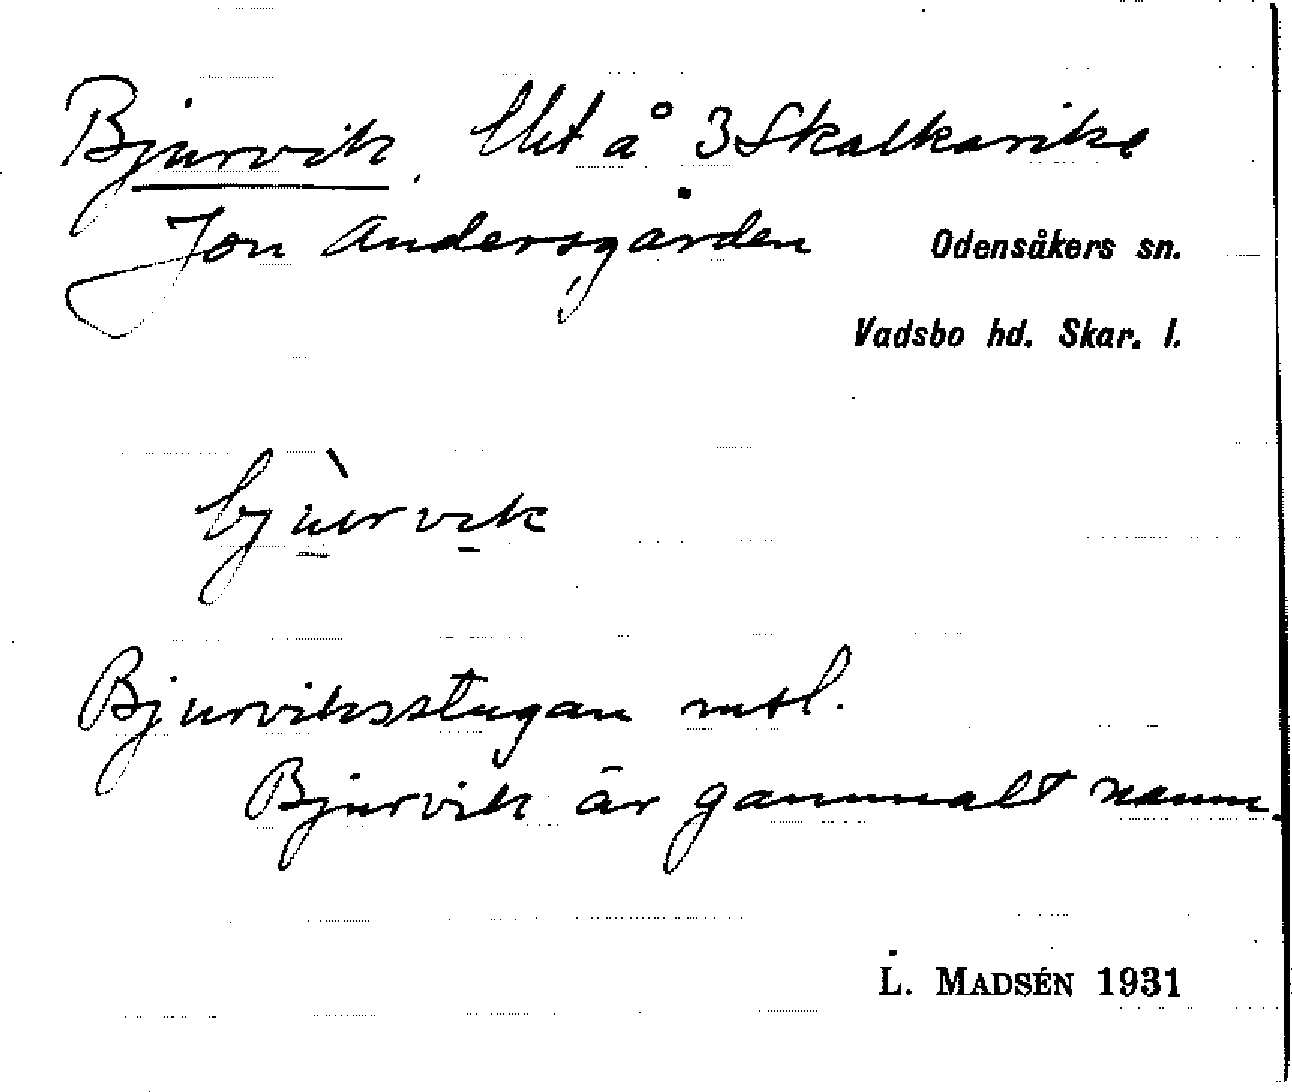 Bjurvik, lht å 3 Skalkarike
Jon Andersgården
Odensåkers sn.
Vadsbo hd. Skar. l.
bjùrvik
Bjurviksstugan mtl.
Bjurvik är gammalt namn.
L. MADSÉN 1931